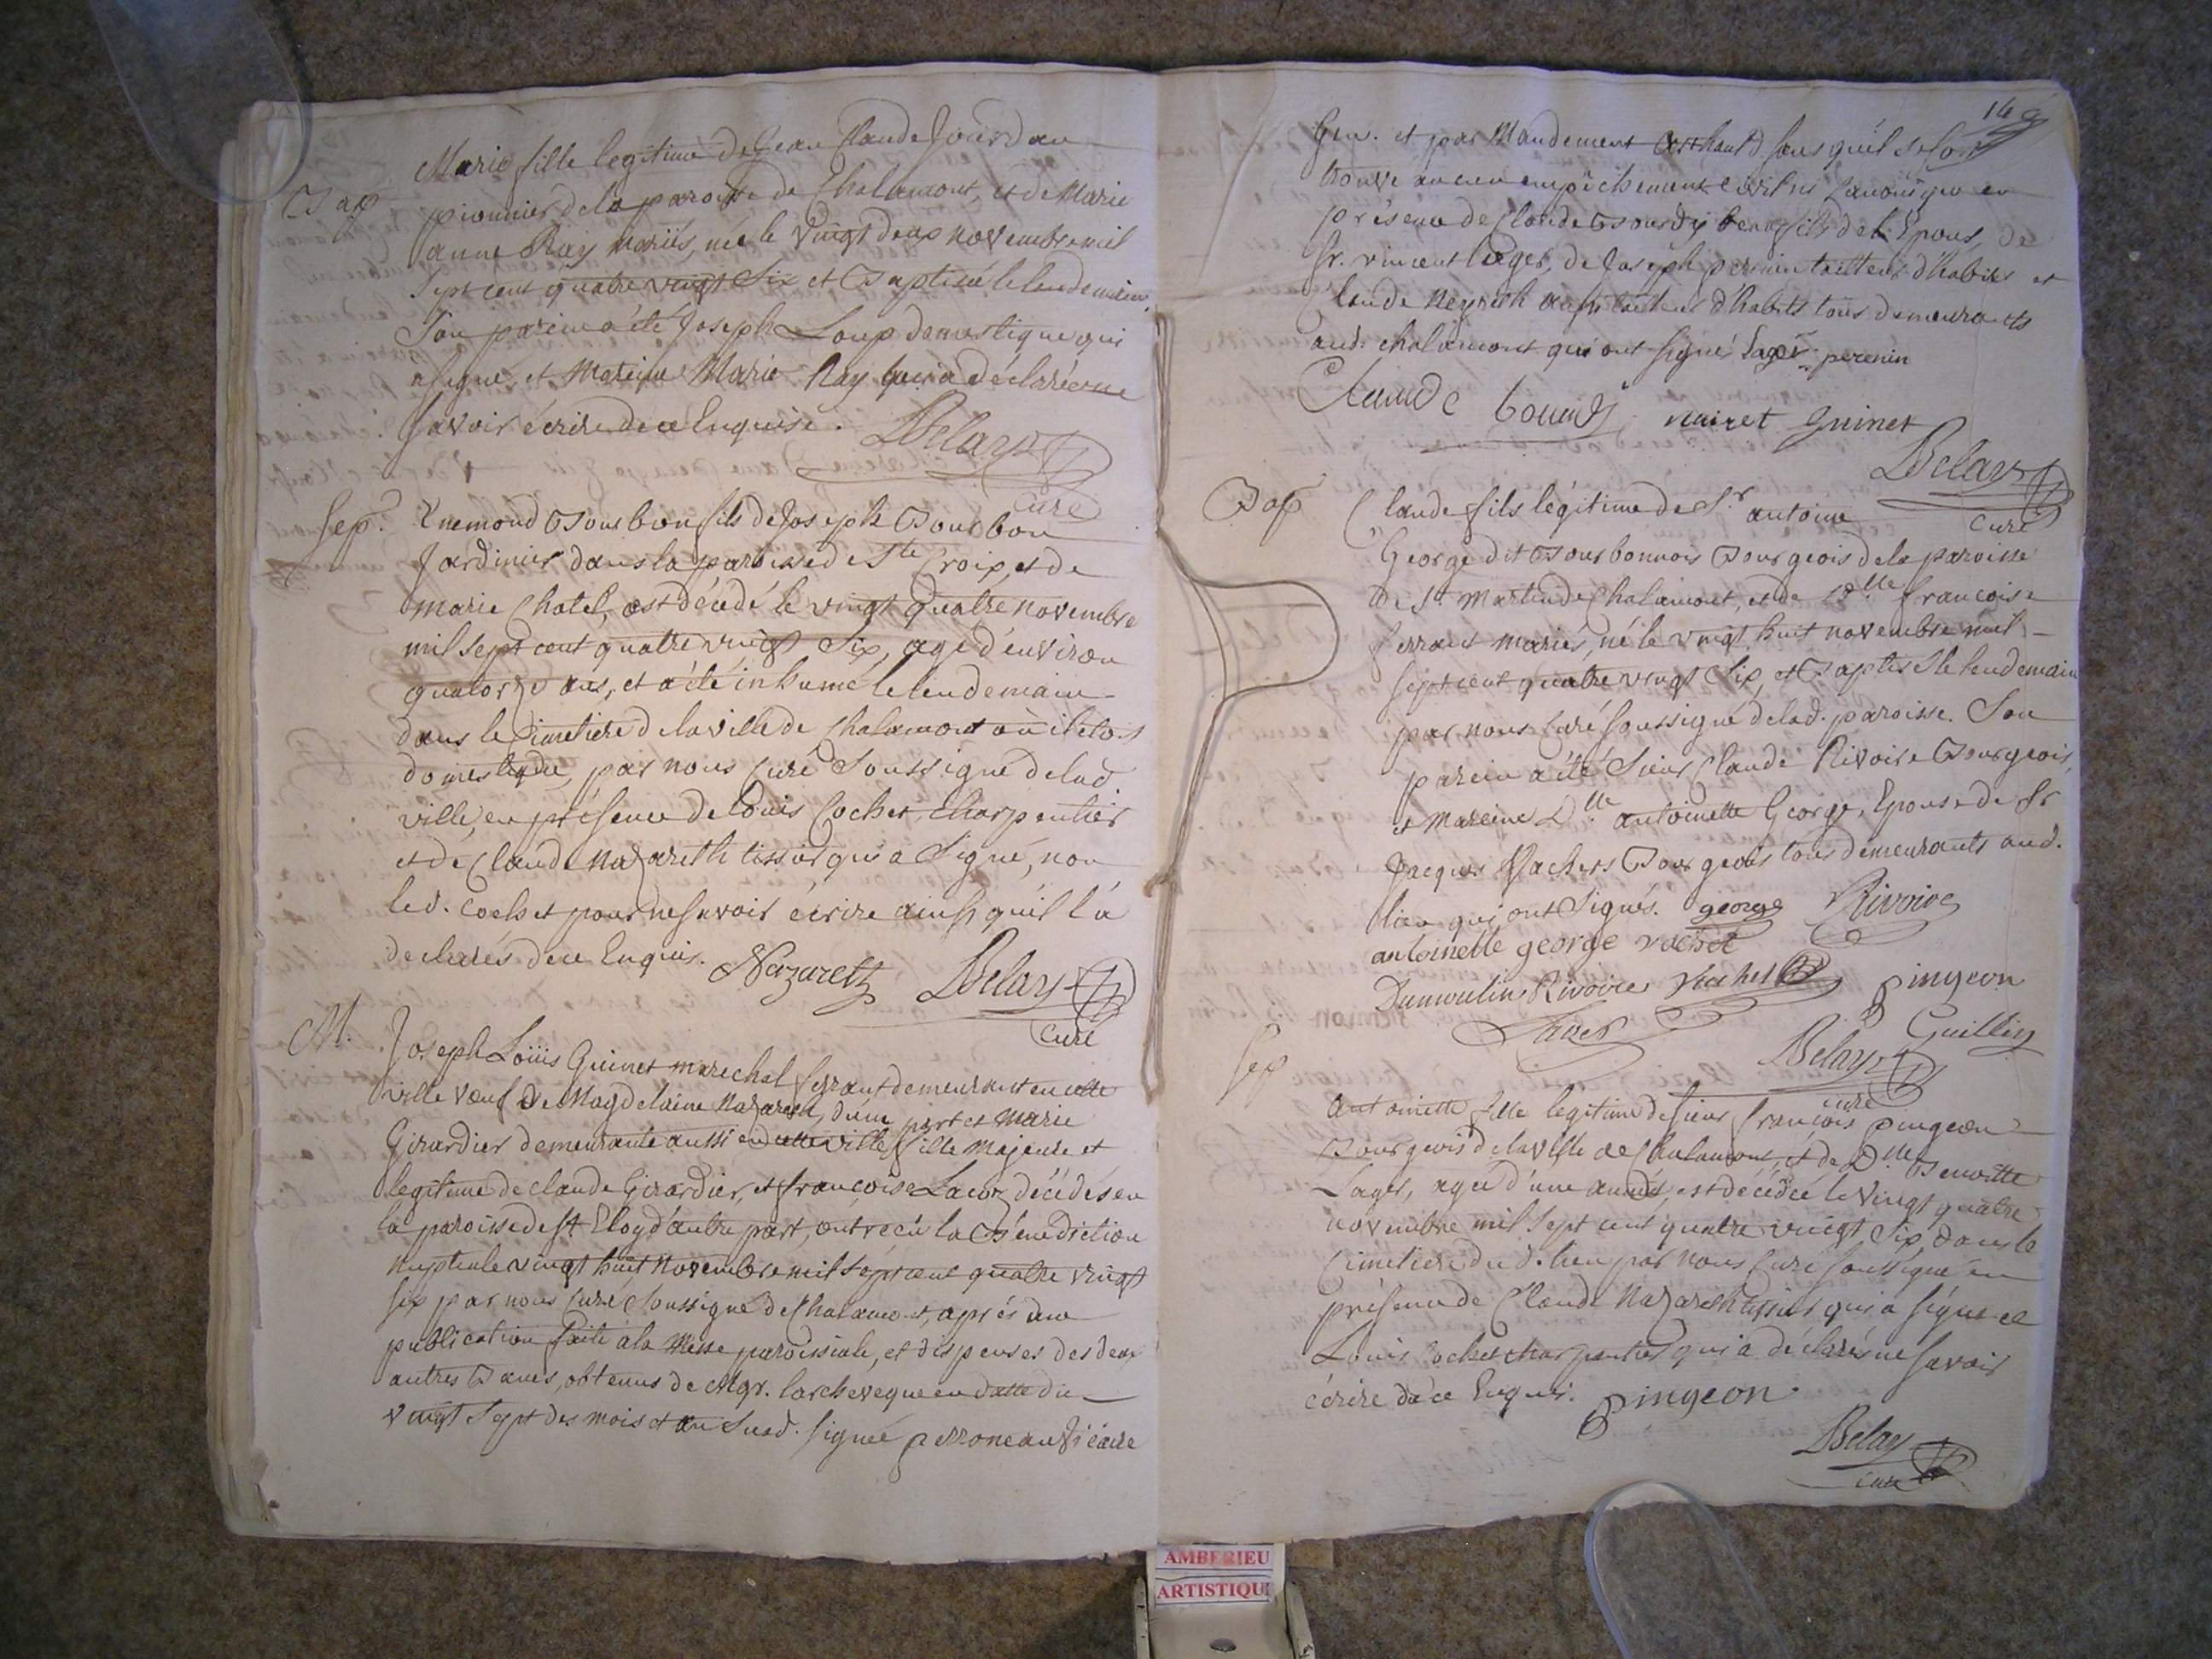 Bap
Marie fille legitime de Jean Claude Jourdan
pionnier de la paroisse de Chalamont, et de Marie
anne Ray mariés, née le vingt deux novembre mil
sept cent quatre vingt Six et Baptisée le lendemain
Son parein a été Joseph Loup domestique qui
a signé, et Mareine Marie Ray qui a déclaré ne
savoir écrire de ce Enquise. Belay
Curé
Sep.
Enemond Bourbon fils de Joseph Bourbon
Jardinier dans la paroisse de Ste Croix, et de
marie Chatel, est décédé le vingt quatre novembre
mil sept cent quatre vingt Six, agé d'environ
quatorze ans, et a été inhumé le lendemain
dans le Cimetiere de la ville de Chalamont où il étoit
domestique, par nous Curé Soussigné de lad.
ville, en présence de Louis Cochet, Charpentier
et de Claude Nazareth tissier qui a Signé, non
led. Cochet pour ne savoir écrire ainsy qu'il l'a
declarés de ce Enquis. Nazareth Belay
Curé
M.
Joseph Loüis Guinet marechal ferrant demeurant en cette
ville veuf de Magdelaine Nazareth, d'une part et Marie
Girardier demeurante aussi en cette ville fille Majeure et
legitime de Claude Girardier, et françoise Lacoz décédés en
la paroisse de St Eloy d'autre part, ont recu la Bénédiction
nuptiale vingt huit Novembre mil sept cent quatre vingt
six par nous Curé Soussigné de Chalamont, aprés une
publication faite a la Messe paroissiale, et dispenses des deux
autres Bancs, obtenus de Mgr. larcheveque en datte du
vingt Sept des mois et an Susd. signée perroneau Vicaire
149
Gen. et par Mandement sans qu'il se soit
trouvé aucun empêchement civil ni Canonique en
présence de Claude Bourdy beaufils de l'Epous, de
Sr. vincent Léger, de Joseph perenin tailleur d'habits et
Claude Neyreth aussi tailleur d'habits tous demeurants
aud. Chalamont qui ont signés Lager perenin
Claude bourdy nairet guinet
Belay
Curé
Bap
Claude fils légitime de Sr antoine
George dit Bourbonnois Bourgeois de la paroisse
de St Martin de Chalamont, et de Dlle francoise
ferrant mariés, né le vingt huit novembre mil
sept cent quatre vingt Six, et Baptisé le lendemain
par nous Curé soussigné de lad. paroisse. Son
parein a été Sieur Claude Rivoire Bourgeois,
et Mareine Dlle antoinette George, Epouse de Sr
Jacques Vachers Bourgeois tous demeurants aud.
lieu qui ont Signés. george Rivoire
antoinette george vachet
Dumoulin Rivoire Vachet pingeon
Guillin
Belay
curé
Sep
antoinette fille legitime de sieur françois pingeon
Bourgeois de la ville de Chalamont, et de Dlle Benoitte
Lager, agée d'une année, est décédée le vingt quatre
novembre mil Sept cent quatre vingt Six, dans le
Cimetiere dud. lieu par nous Curé soussigné en
présence de Claude Nazareth tissier qui a signé et
Louis Cochet charpentier qui a déclarés ne savoir
écrire de ce Enquis. pingeon
Belay
curé
AMBERIEU
ARTISTIQU